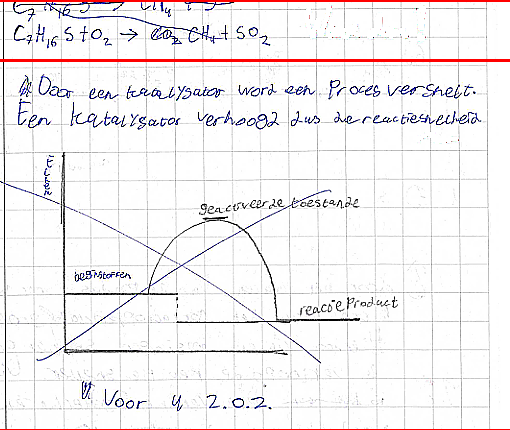 C7H16S+O2 → CH4 + SO2
Door een katalysator word een Proces versnelt.
Een katalysator verhoogd dus de reactiesnelheid
geactiveerde toestande
beginstoffen
reactie Product
Voor 4 2.0.2.